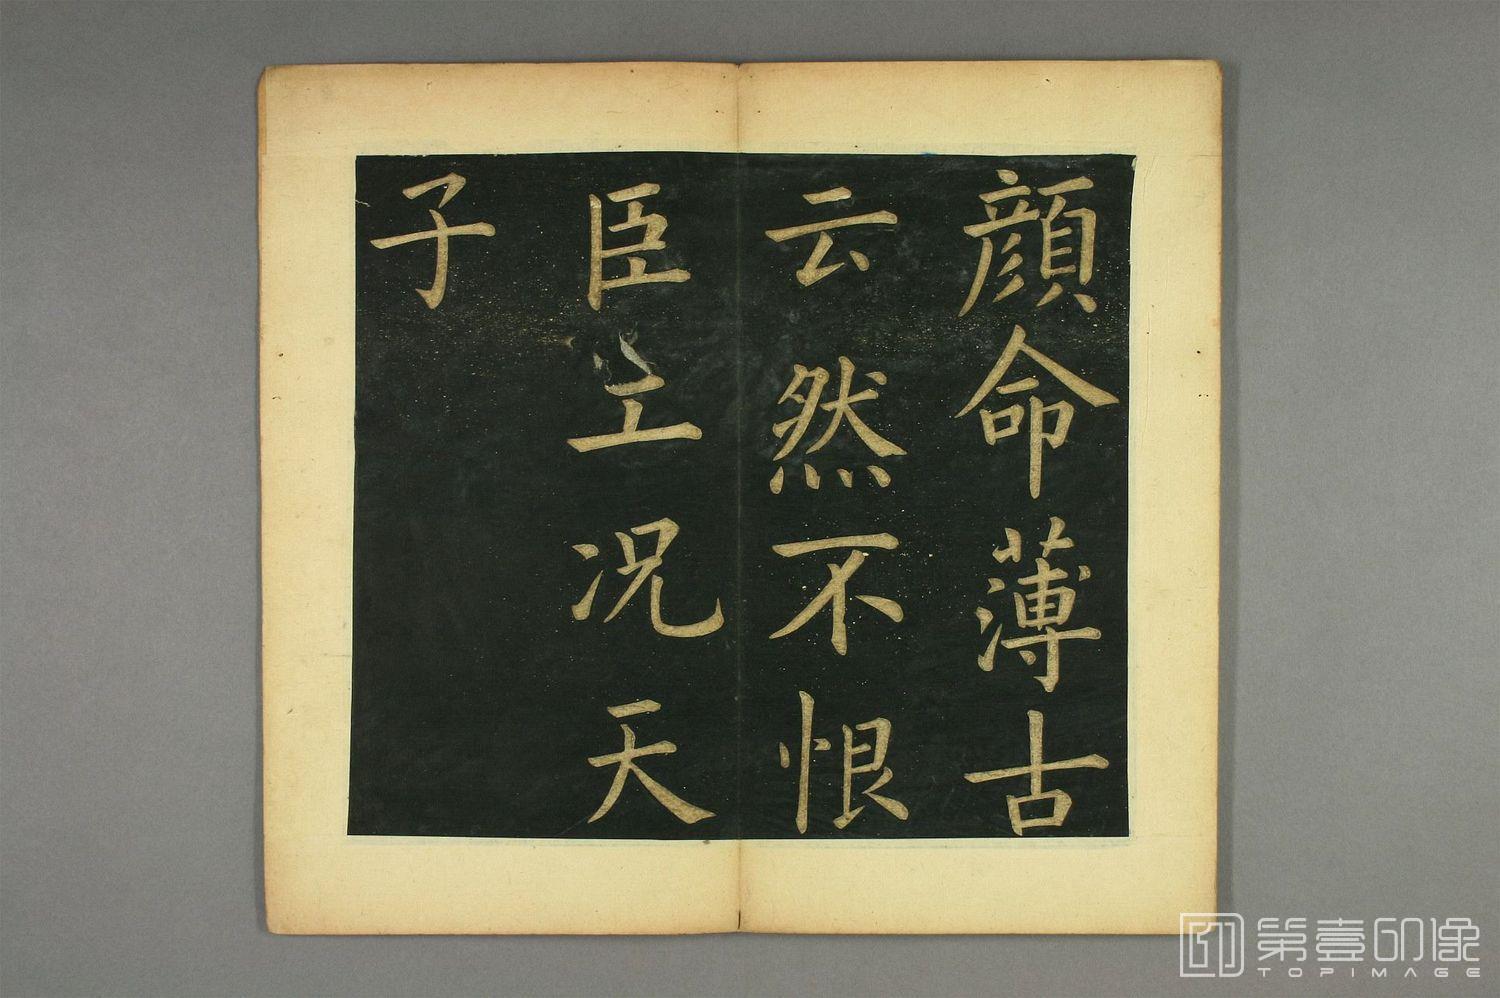 顔命薄古
云然不恨
臣工况天
子
第壹印像
TOPIMAGE